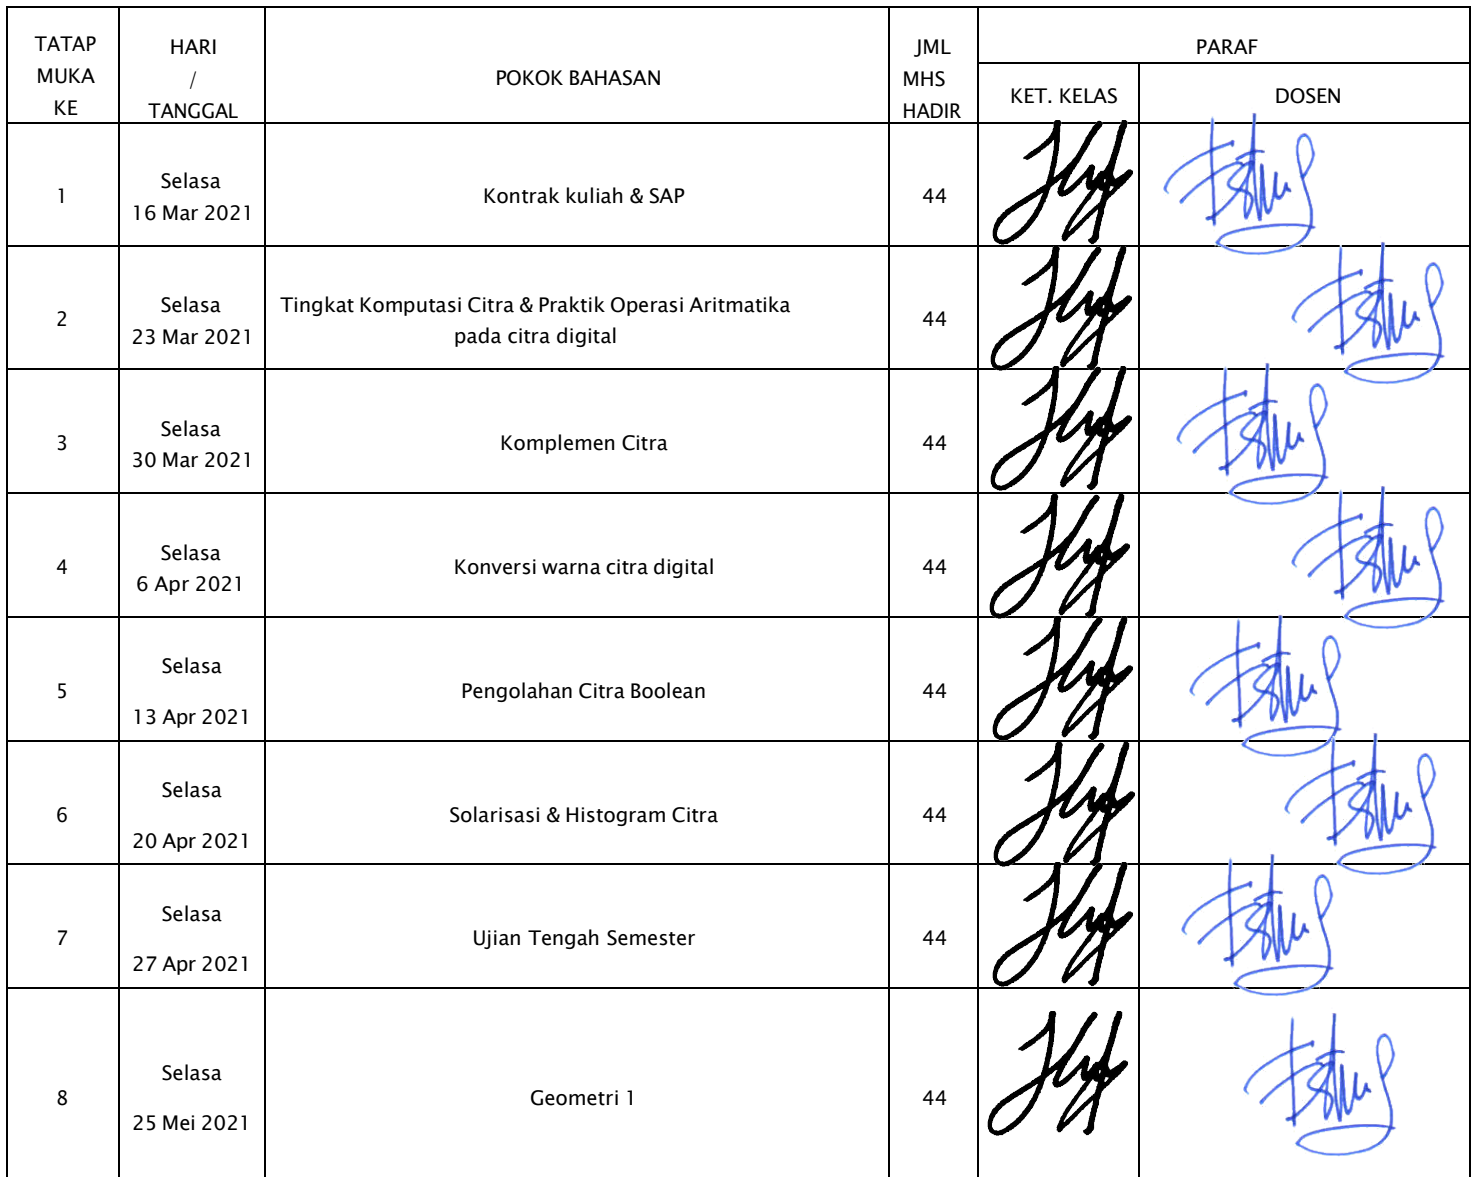 TATAP MUKA KE
HARI / TANGGAL
POKOK BAHASAN
JML MHS HADIR
PARAF
KET. KELAS
DOSEN
1
Selasa
16 Mar 2021
Kontrak kuliah & SAP
44
2
Selasa
23 Mar 2021
Tingkat Komputasi Citra & Praktik Operasi Aritmatika
pada citra digital
44
3
Selasa
30 Mar 2021
Komplemen Citra
44
4
Selasa
6 Apr 2021
Konversi warna citra digital
44
5
Selasa
13 Apr 2021
Pengolahan Citra Boolean
44
6
Selasa
20 Apr 2021
Solarisasi & Histogram Citra
44
7
Selasa
27 Apr 2021
Ujian Tengah Semester
44
8
Selasa
25 Mei 2021
Geometri 1
44